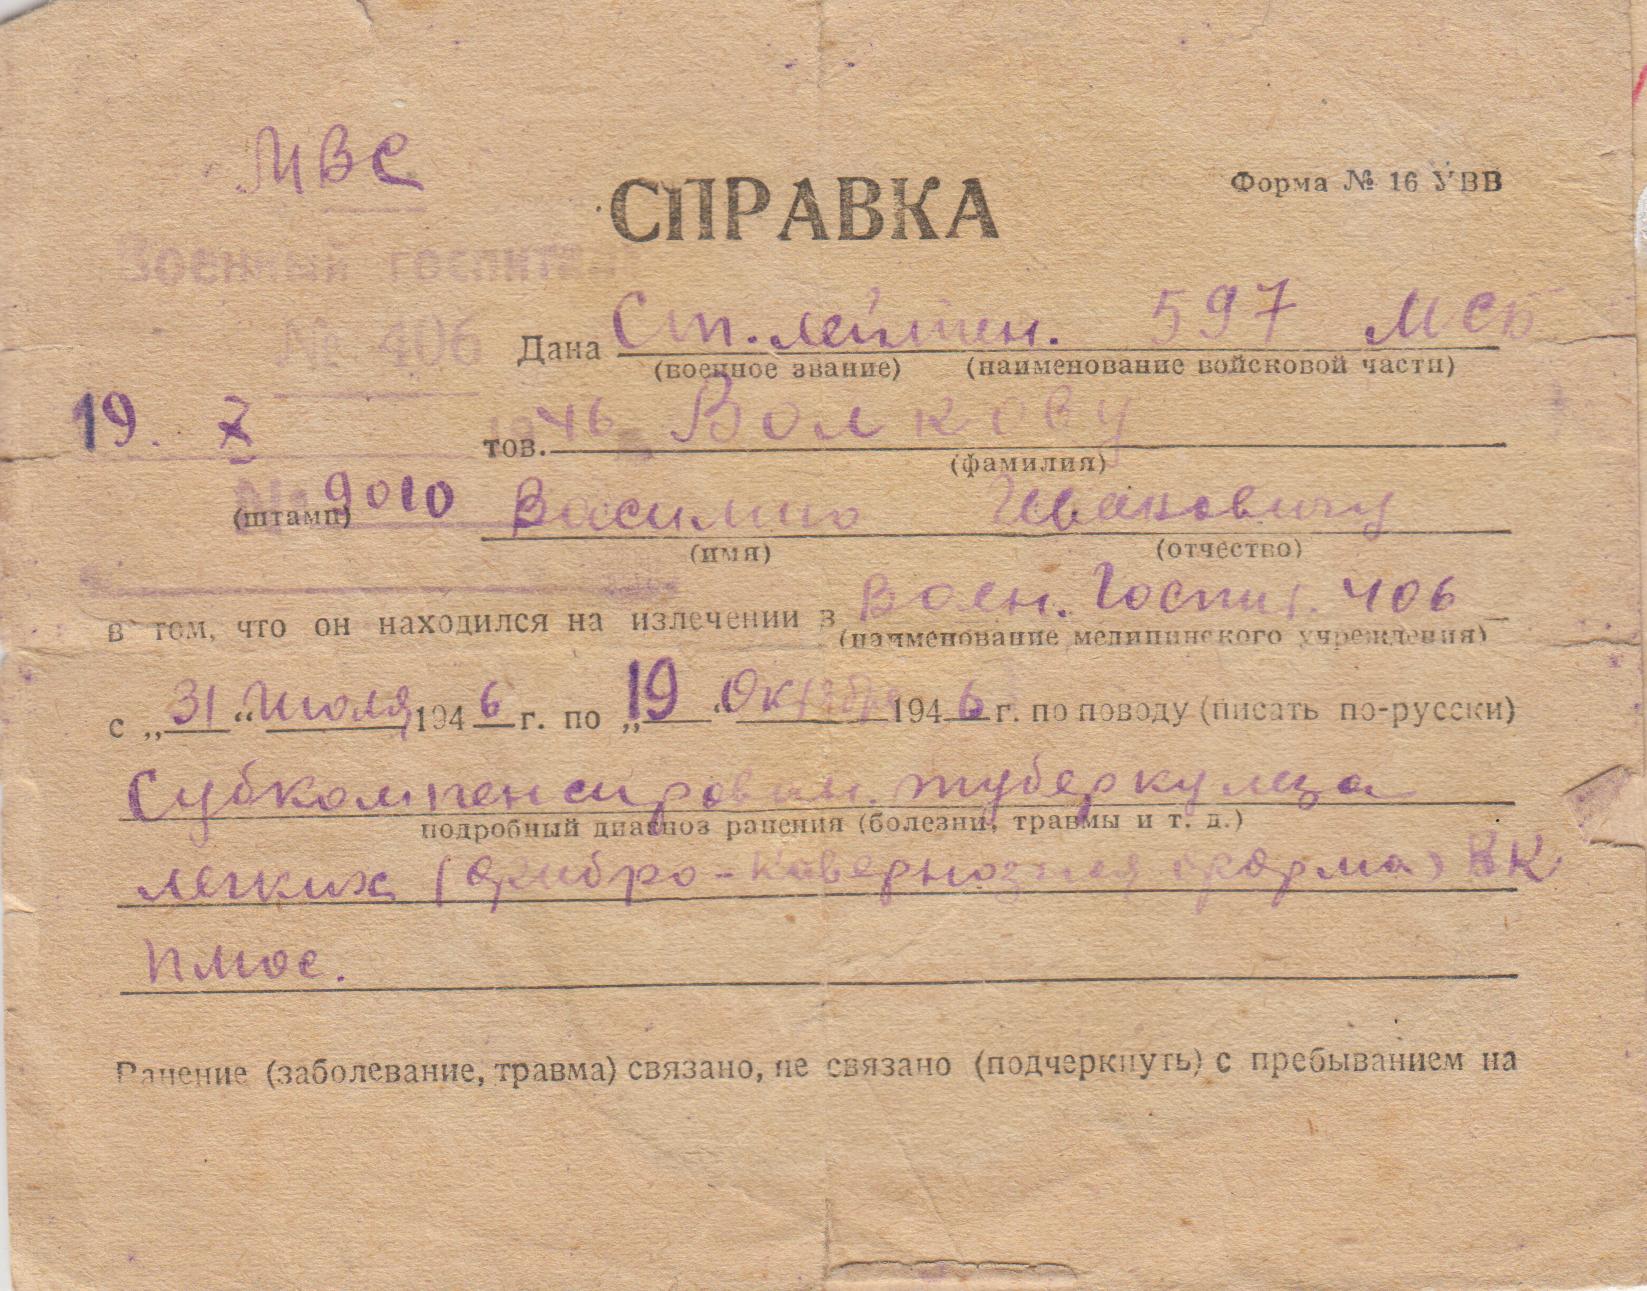 МВС
СПРАВКА
Форма № 16 УВВ
Военный госпиталь
№ 406
Дана Ст. лейтен. 597 МСБ
(военное звание) (наименование войсковой части)
19. X 1946
тов. Волкову
(фамилия)
№ 9010
(штамп)
Василию Ивановичу
(имя) (отчество)
в том, что он находился на излечении в Воен. Госпит. 406
(наименование медицинского учреждения)
с „31“ Июля 1946 г. по „19“ Октября 1946 г. по поводу (писать по-русски)
Субкомпенсирован. туберкулеза
подробный диагноз ранения (болезни, травмы и т. д.)
легких (фибро-кавернозная форма) ВК
плюс.
Ранение (заболевание, травма) связано, не связано (подчеркнуть) с пребыванием на